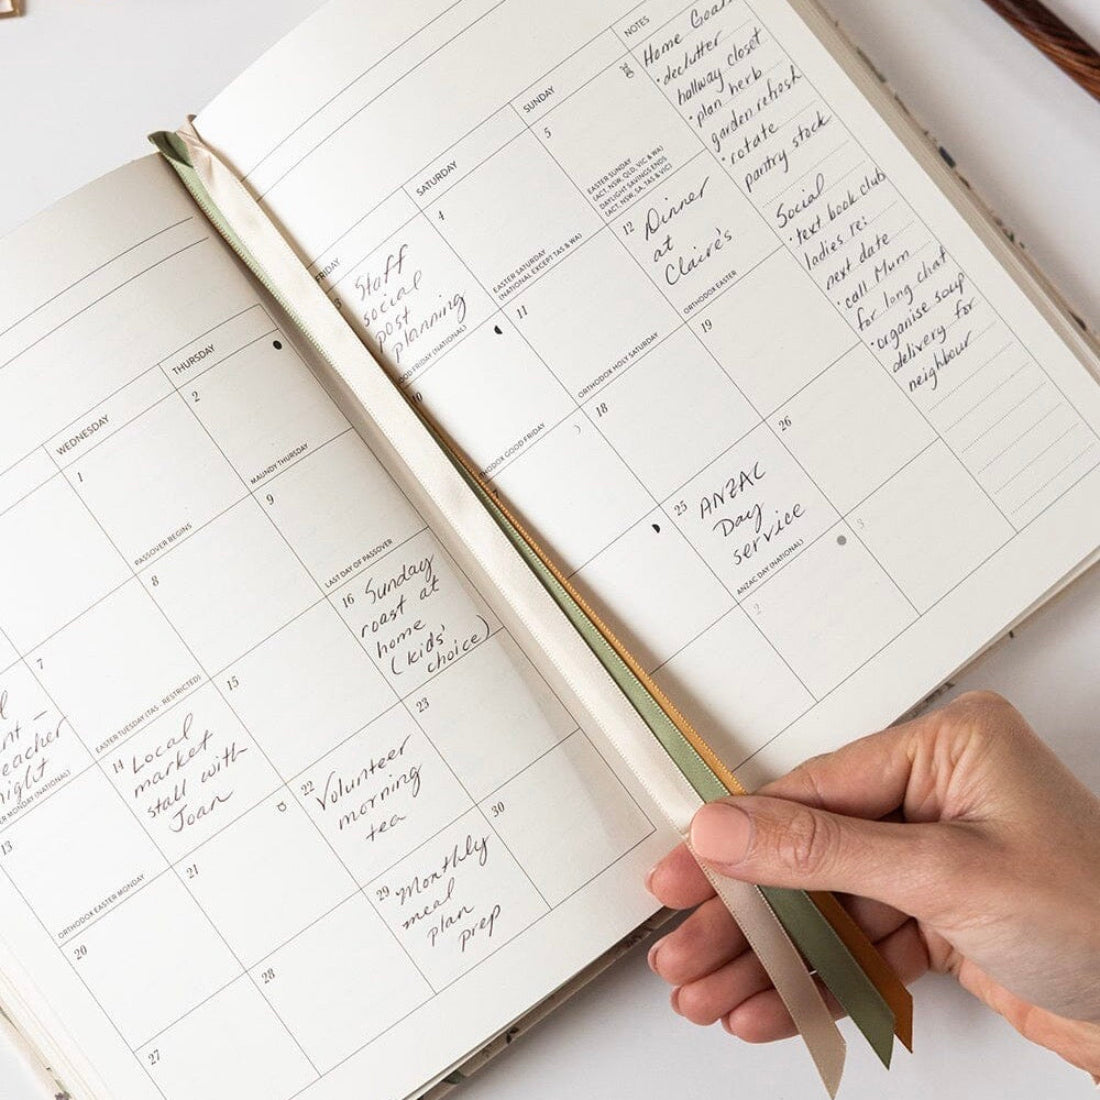 WEDNESDAY
THURSDAY
1
PASSOVER BEGINS
2
MAUNDY THURSDAY
night
7
EASTER TUESDAY (TAS - RESTRICTED)
8
9
LAST DAY OF PASSOVER
13
ORTHODOX EASTER MONDAY
14 Local
market
stall with
Joan
15
16 Sunday
roast at
home
(kids'
choice)
20
21
22 Volunteer
morning
tea
23
27
28
29 Monthly
meal
plan
prep
30
FRIDAY
SATURDAY
SUNDAY
NOTES
3 Staff
social
post
planning
OOD FRIDAY (NATIONAL)
4
EASTER SATURDAY
(NATIONAL EXCEPT TAS & WA)
5
EASTER SUNDAY
(ACT, NSW, QLD, VIC & WA)
DAYLIGHT SAVINGS ENDS
(ACT, NSW, SA, TAS & VIC)
10
THODOX GOOD FRIDAY
11
ORTHODOX HOLY SATURDAY
12 Dinner
at
Claire's
ORTHODOX EASTER
18
19
25 ANZAC
Day
service
ANZAC DAY (NATIONAL)
26
2
3
Home Goals
• declutter
hallway closet
• plan herb
garden refresh
• rotate
pantry stock
Social
• text book club
ladies re:
next date
• call Mum
for long chat
• organise soup
delivery for
neighbour